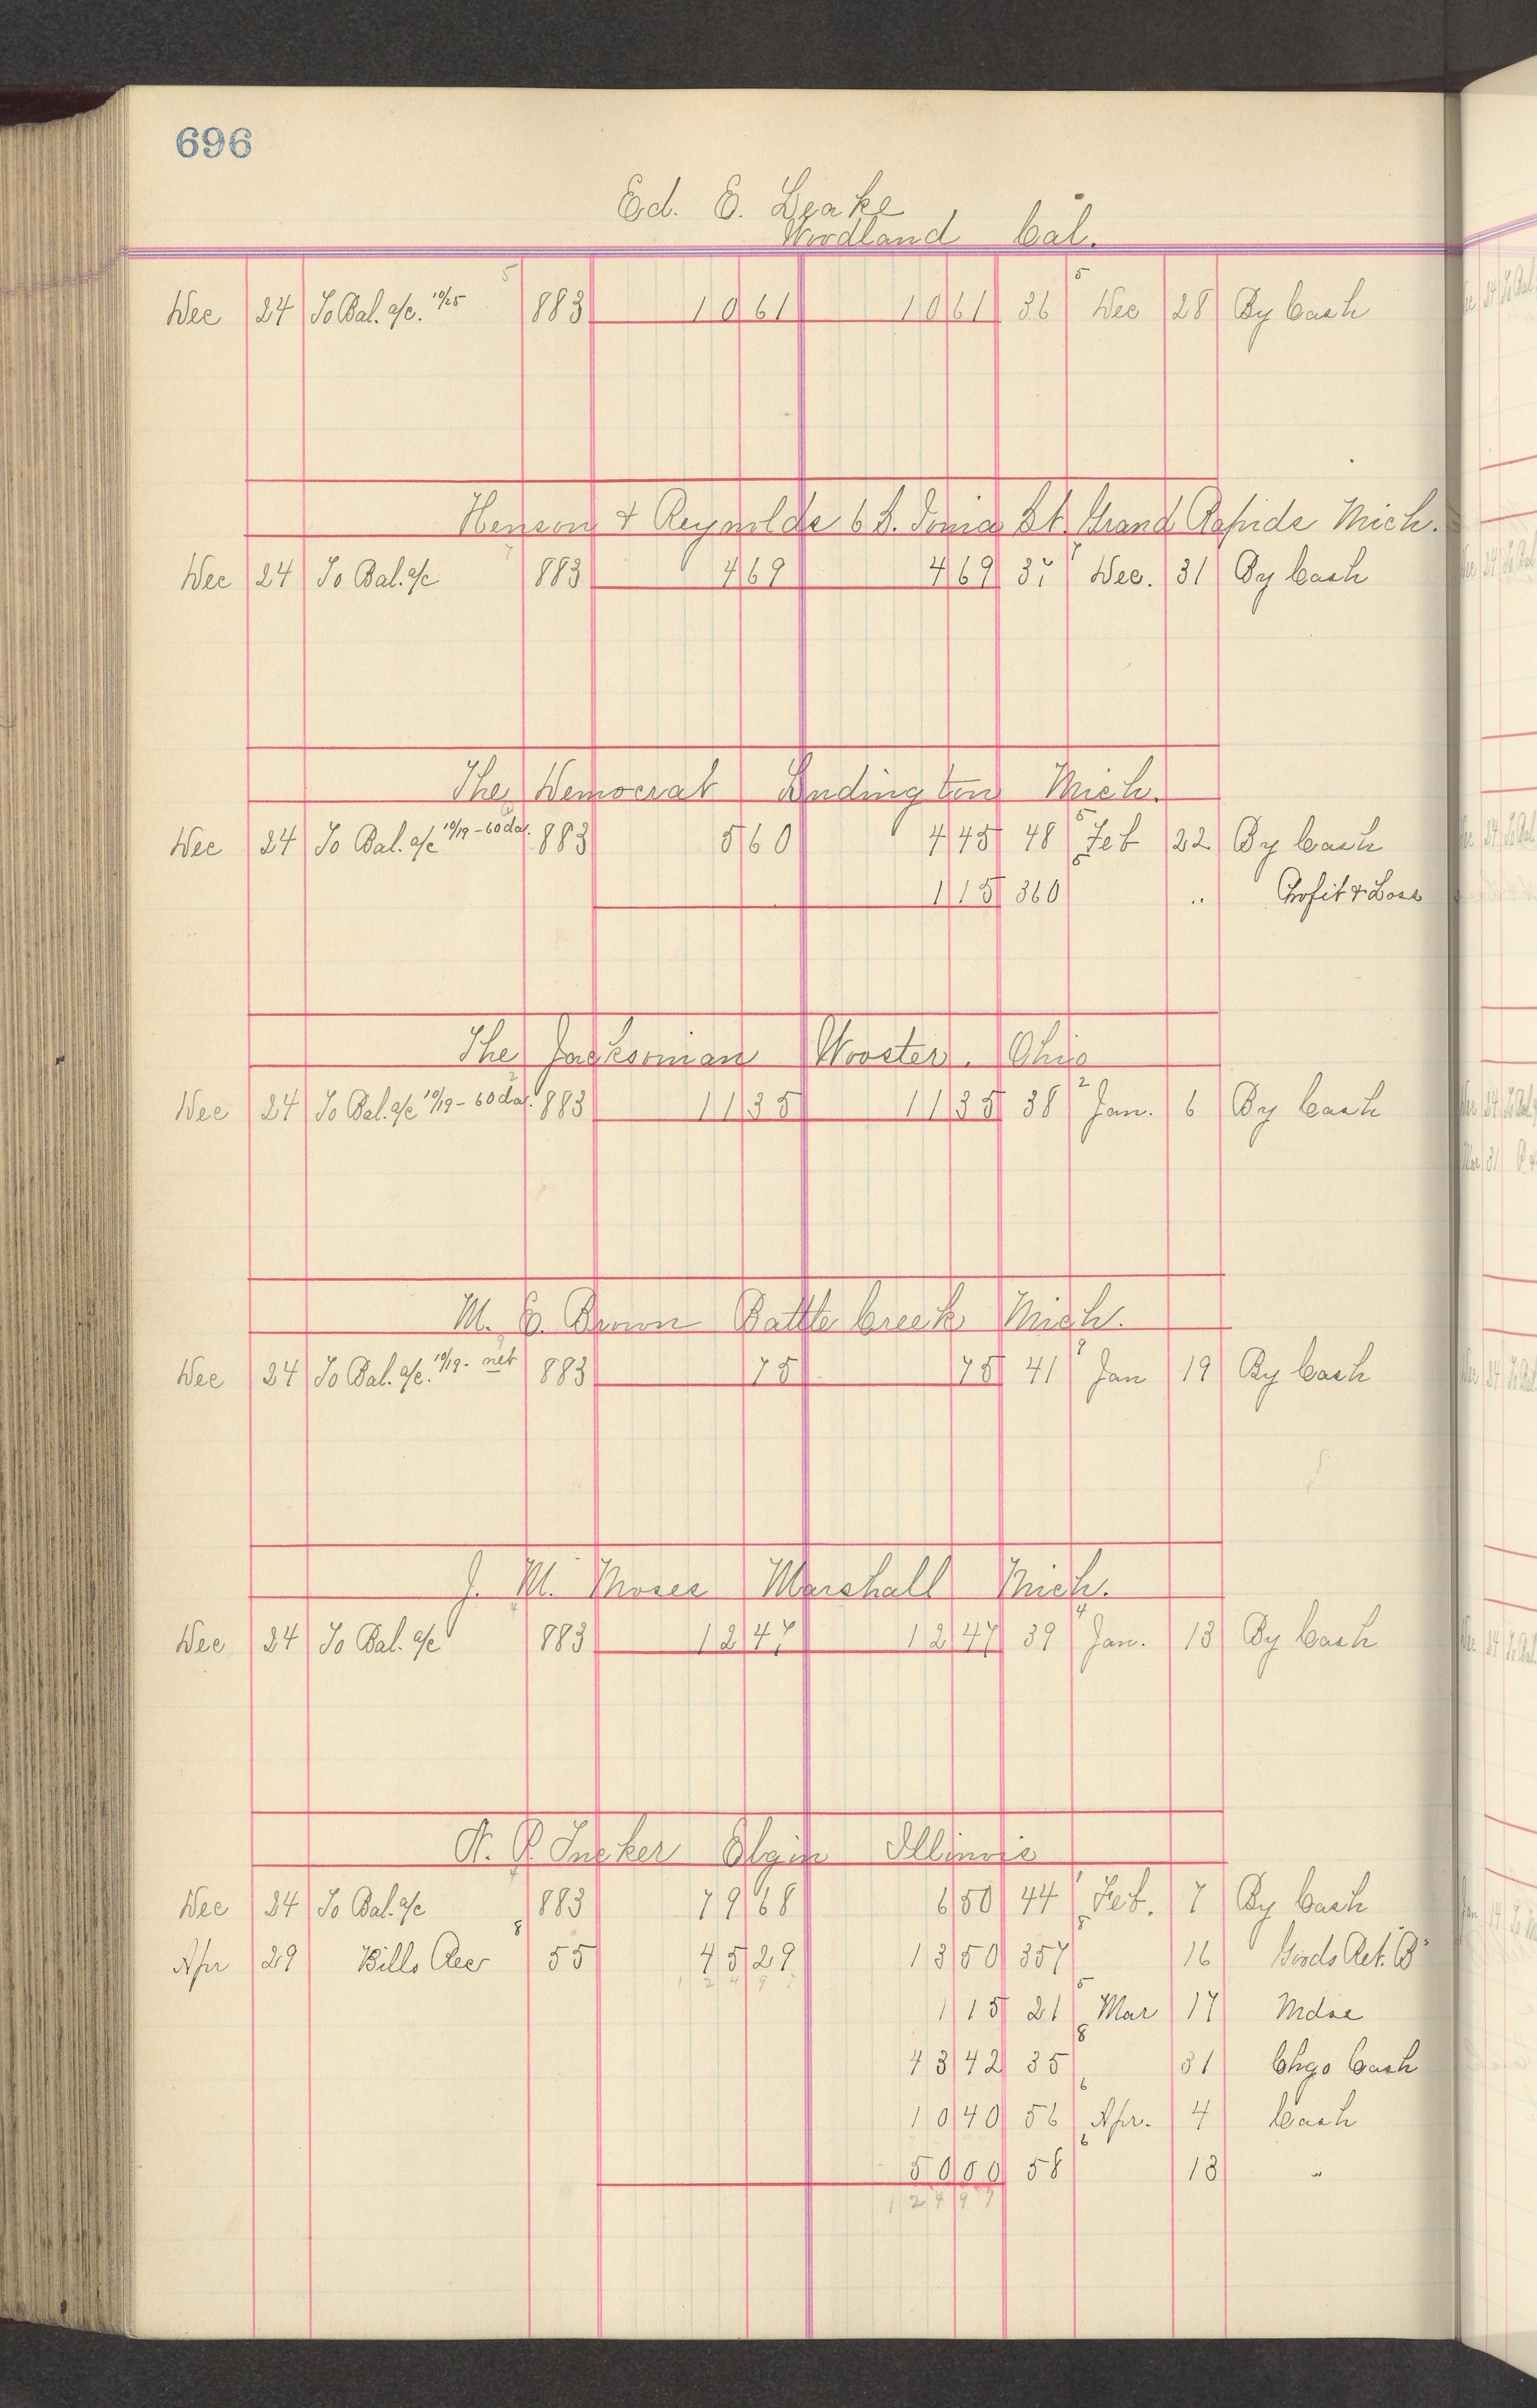 696
Ed. E. Leake
Woodland Cal.
Dec 24 To Bal. a/c. 10/25 883 10 61 10 61 36 5 Dec 28 By Cash
Henson & Reynolds 6 S. Ionia St. Grand Rapids Mich.
Dec 24 To Bal. a/c 883 4 69 4 69 37 Dec. 31 By Cash
The Democrat Ludington Mich.
Dec 24 To Bal. a/c 10/19 - 60 da. 883 5 60 4 45 48 5 Feb 22 By Cash
1 15 360 6 .. Profit & Loss
The Jacksonian Wooster. Ohio
Dec 24 To Bal. a/c 10/19 - 60 da. 883 11 35 11 35 38 2 Jan. 6 By Cash
M. E. Brown Battle Creek Mich.
Dec 24 To Bal. a/c. 10/19 - net 883 75 75 41 Jan 19 By Cash
J. M. Moses Marshall Mich.
Dec 24 To Bal. a/c 883 12 47 12 47 39 4 Jan. 13 By Cash
A. P. Tucker Elgin Illinois
Dec 24 To Bal. a/c 883 79 68 6 50 44 Feb. 7 By Cash
Apr 29 Bills Rec 8 55 45 29 13 50 357 16 Goods Ret. B
1 2 4 9 7
1 15 21 5 Mar 17 Mdse
43 42 35 8 31 Chgo Cash
10 40 56 6 Apr. 4 Cash
50 00 58 6 13 "
1 2 4 9 7